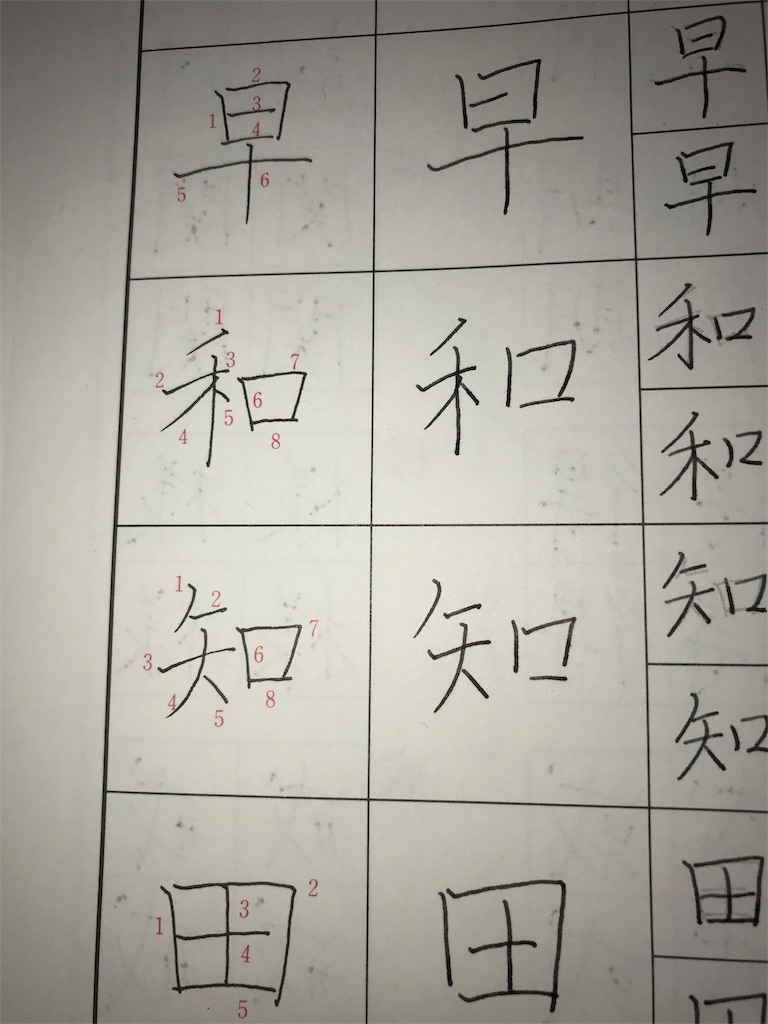 早 早 早
早
和 和 和
和
知 知 知
知
田 田 田
1 2 3 4 5 6
1 2 3 4 5 6 7 8
1 2 3 4 5 6 7 8
1 2 3 4 5